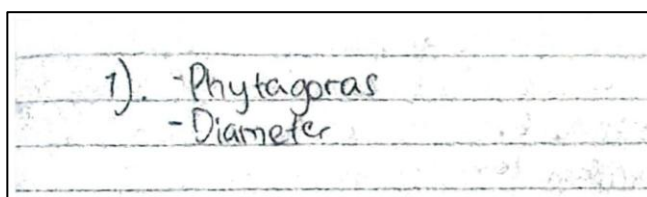 1). - Phytagoras
- Diameter